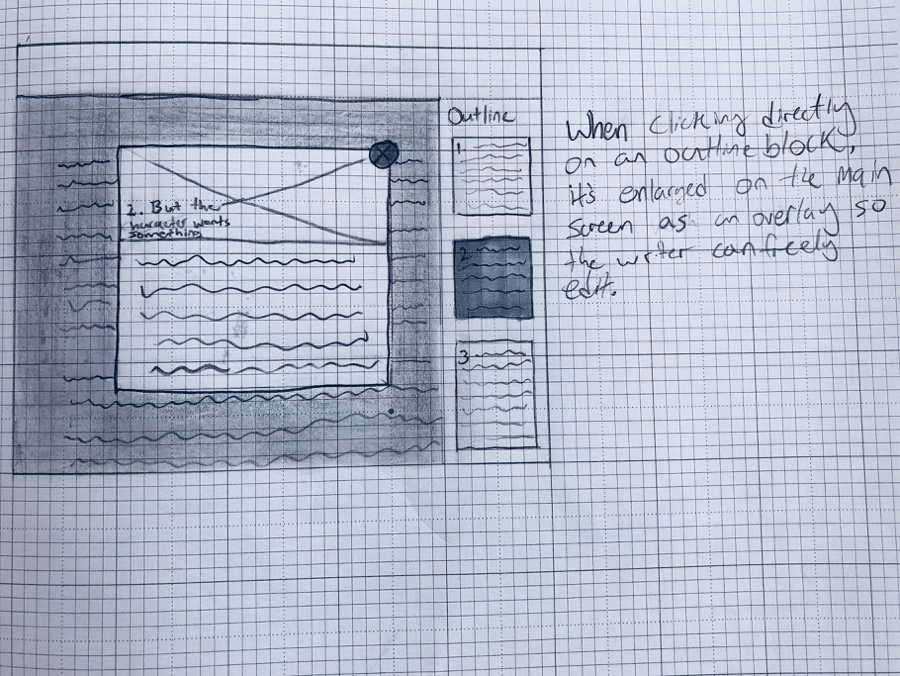 Outline
1.
2.
3
2. But the
character wants
something
When clicking directly
on an outline block,
it's enlarged on the main
screen as an overlay so
the writer can freely
edit.